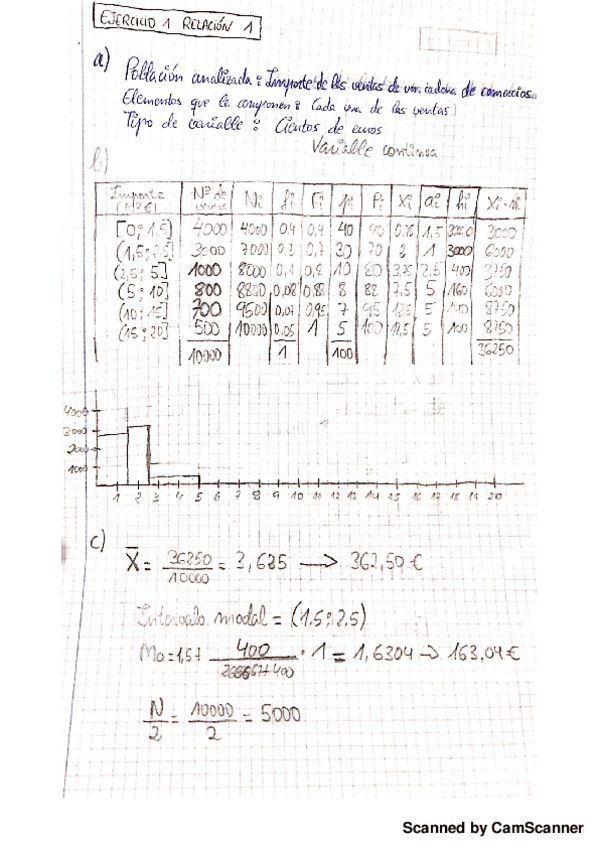 EJERCICIO 1 RELACIÓN 1
a) Población analizada: Importe de las ventas de una cadena de comercios.
Elementos que la componen: Cada una de las ventas
Tipo de variable: Cientos de euros
Variable continua
b)
Importe Nº de Ni fi Fi pi Pi Xi ai hi Xi·ni
[0; 1,5] 4000 4000 0,4 0,4 40 40 1,5 3000
(1,5; 2,5] 3000 7000 0,3 0,7 30 70 2 1 3000 6000
(2,5; 5] 1000 8000 0,1 0,8 10 80 3,75 2,5 400 3750
(5; 10] 800 8800 0,08 0,88 8 88 7,5 5 160 6000
(10; 15] 700 9500 0,07 0,95 7 95 12,5 5 140 8750
(15; 20] 500 10000 0,05 1 5 100 17,5 5 100 8750
10000 1 100 36250
4000
3000
2000
1000
1 2 3 4 5 6 7 8 9 10 11 12 13 14 15 16 17 18 19 20
c) X̄ = 36250/10000 = 3,625 → 362,50 €
Intervalo modal = (1,5; 2,5)
Mo = 1,5 + 400/2666,67+400 · 1 = 1,6304 → 163,04 €
N/2 = 10000/2 = 5000
Scanned by CamScanner